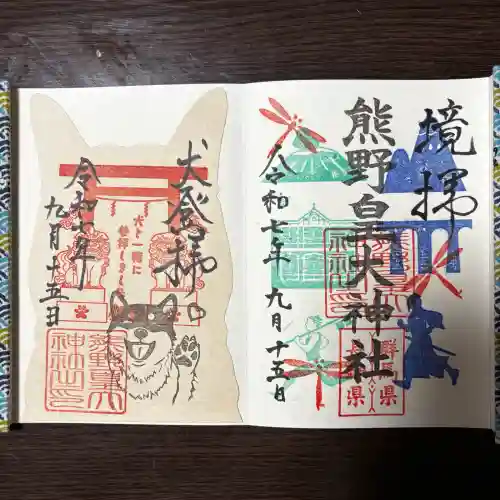 境拝
熊野皇大神社
令和七年 九月十五日
群馬県
犬登拝
犬と一緒に
参拝しました
令和七年
九月十五日
熊野皇大
神社之印